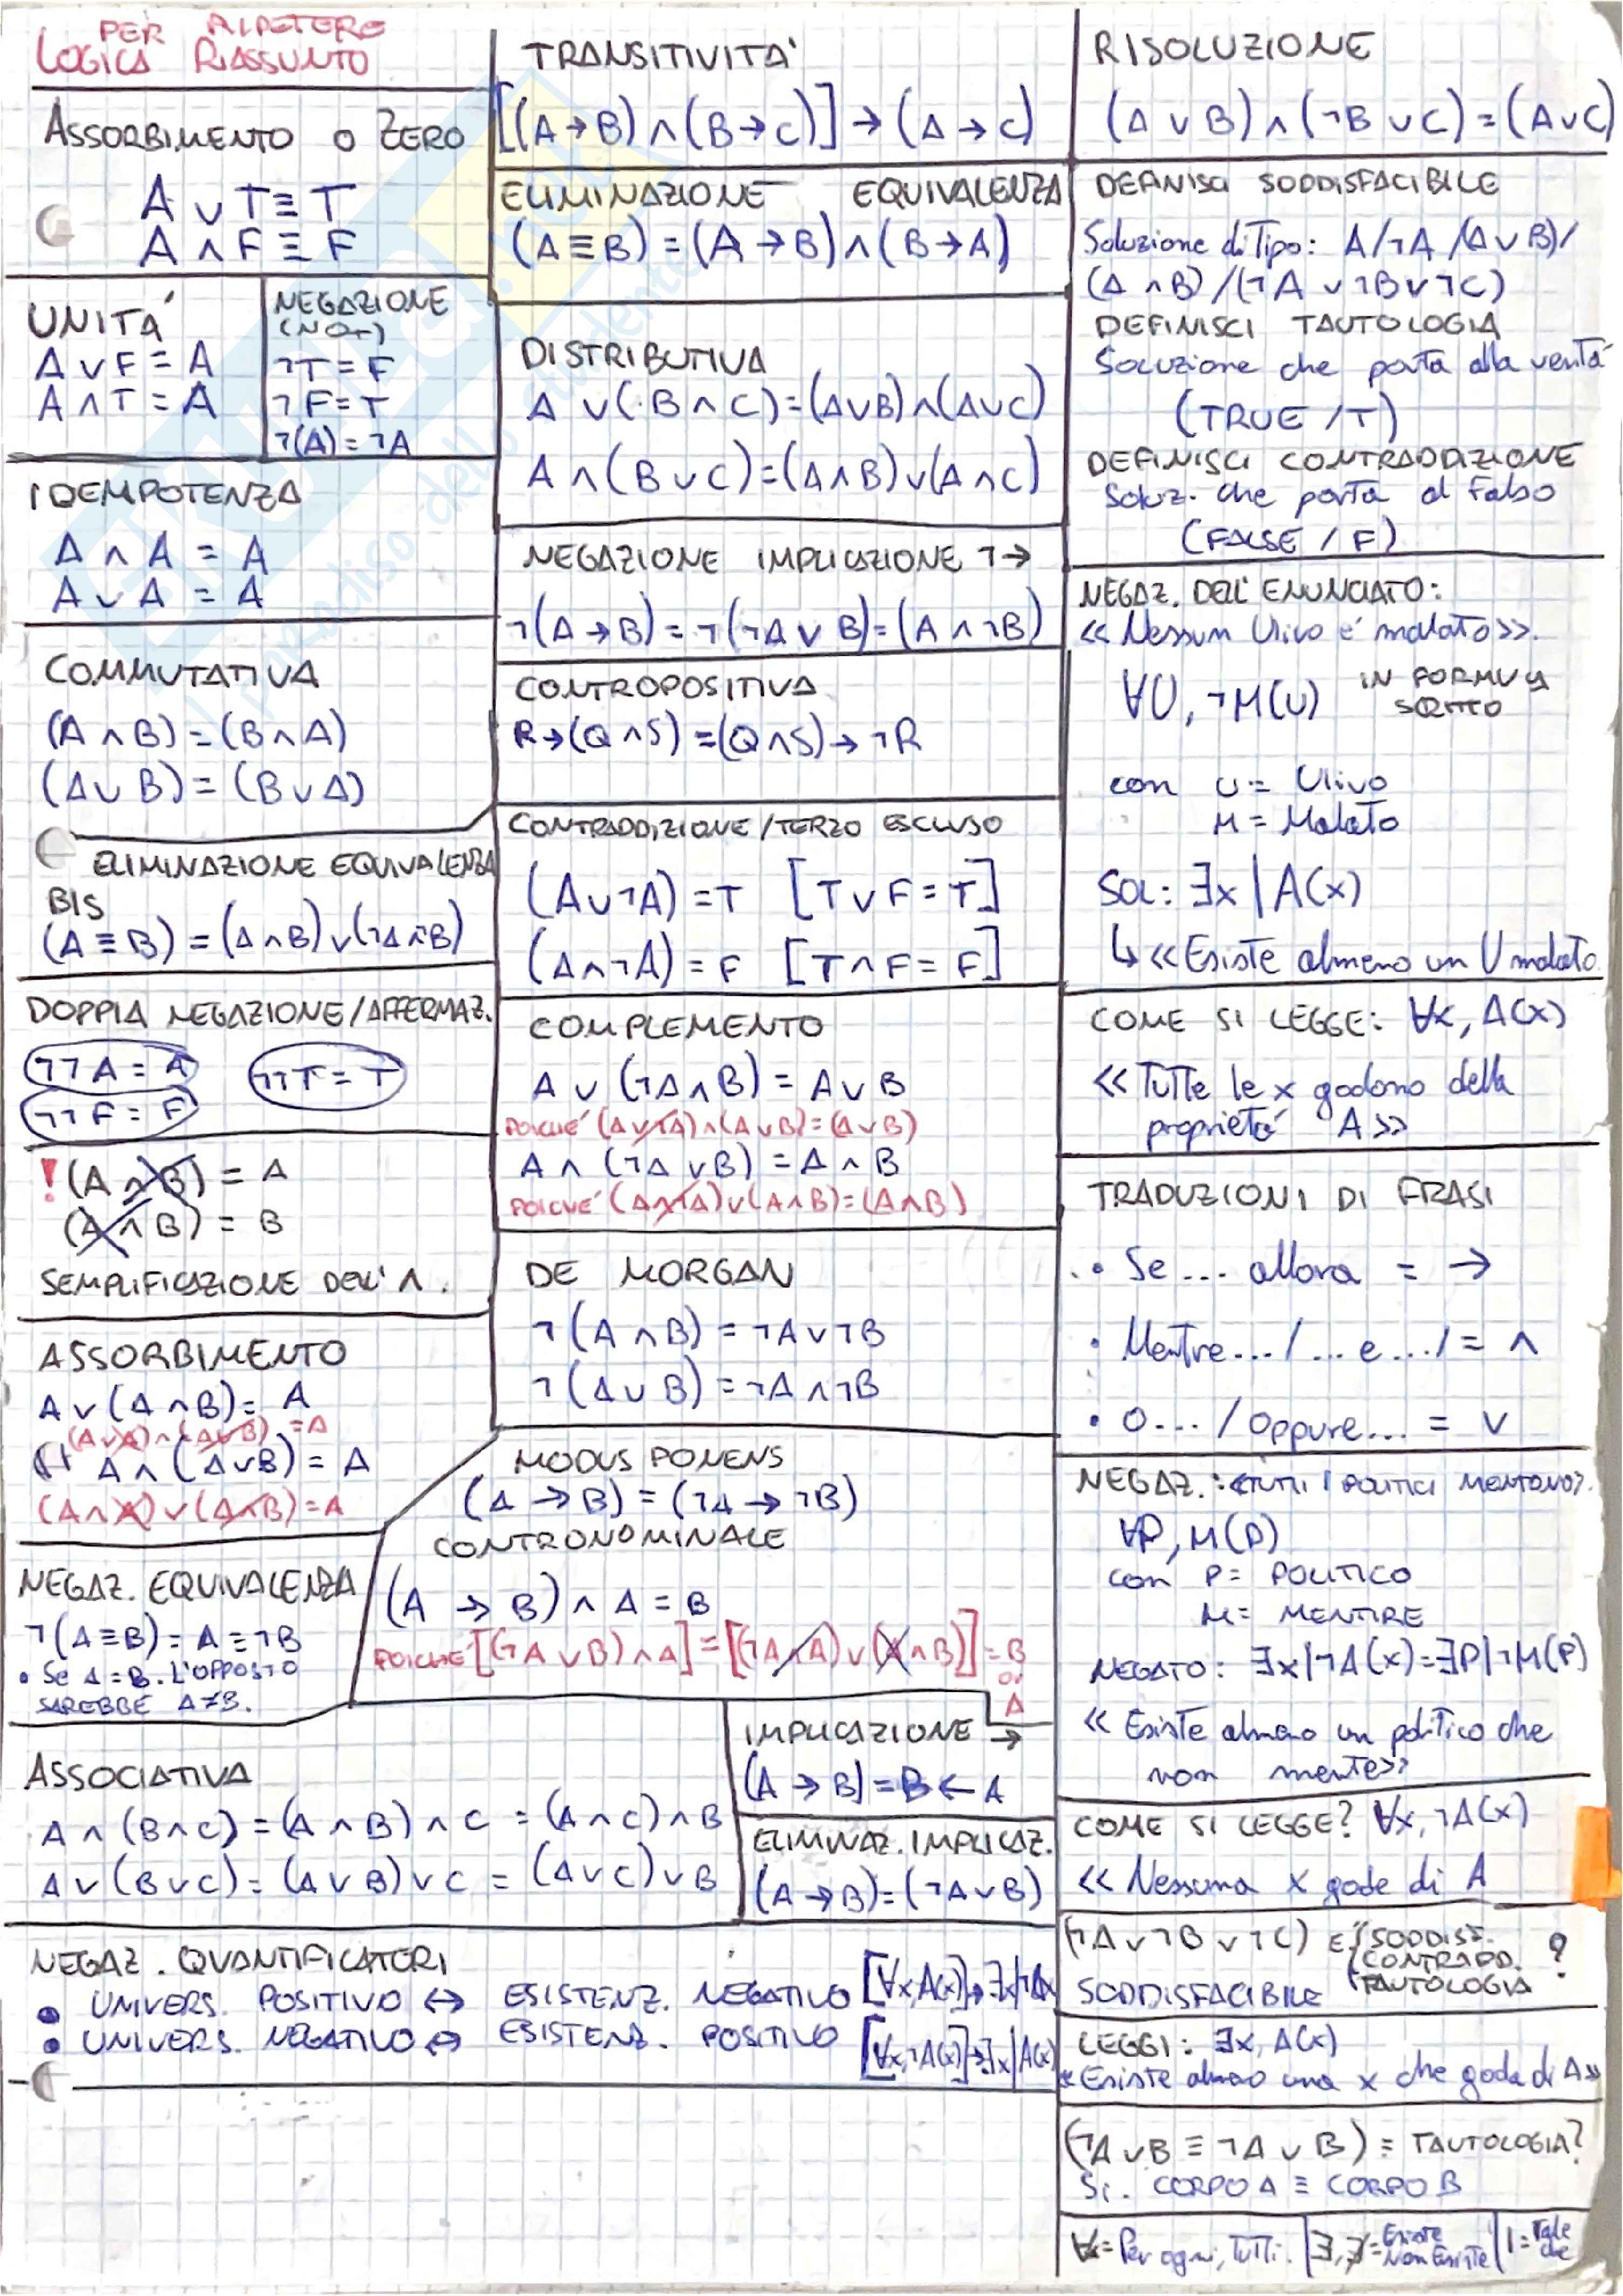 PER RIPETERE
LOGICA RIASSUNTO
ASSORBIMENTO O ZERO
A ∨ T ≡ T
A ∧ F ≡ F
UNITA'
A ∨ F = A
A ∧ T = A
NEGAZIONE
(NOT)
¬T = F
¬F = T
¬(A) = ¬A
IDEMPOTENZA
A ∧ A = A
A ∨ A = A
COMMUTATIVA
(A ∧ B) = (B ∧ A)
(A ∨ B) = (B ∨ A)
ELIMINAZIONE EQUIVALENZA
BIS
(A ≡ B) = (A ∧ B) ∨ (¬A ∧ ¬B)
DOPPIA NEGAZIONE/AFFERMAZ.
¬¬A = A
¬¬T = T
¬¬F = F
! (A ∧ B) = A
(A ∧ B) = B
SEMPLIFICAZIONE DELL' ∧.
ASSORBIMENTO
A ∨ (A ∧ B) = A
(A ∨ A) ∧ (A ∨ B) = A
A ∧ (A ∨ B) = A
(A ∧ A) ∨ (A ∧ B) = A
NEGAZ. EQUIVALENZA
¬(A ≡ B) = A ≡ ¬B
• SE A = B. L'OPPOSTO
SAREBBE A ≠ B.
TRANSITIVITA'
[(A → B) ∧ (B → C)] → (A → C)
ELIMINAZIONE EQUIVALENZA
(A ≡ B) = (A → B) ∧ (B → A)
DISTRIBUTIVA
A ∨ (B ∧ C) = (A ∨ B) ∧ (A ∨ C)
A ∧ (B ∨ C) = (A ∧ B) ∨ (A ∧ C)
NEGAZIONE IMPLICAZIONE ¬→
¬(A → B) = ¬(¬A ∨ B) = (A ∧ ¬B)
CONTROPOSITIVA
R → (Q ∧ S) = (Q ∧ S) → ¬R
CONTRADDIZIONE/TERZO ESCLUSO
(A ∨ ¬A) = T [T ∨ F = T]
(A ∧ ¬A) = F [T ∧ F = F]
COMPLEMENTO
A ∨ (¬A ∧ B) = A ∨ B
POICHE' (A ∨ ¬A) ∧ (A ∨ B) = (A ∨ B)
A ∧ (¬A ∨ B) = A ∧ B
POICHE' (A ∧ ¬A) ∨ (A ∧ B) = (A ∧ B)
DE MORGAN
¬(A ∧ B) = ¬A ∨ ¬B
¬(A ∨ B) = ¬A ∧ ¬B
MODUS PONENS
(A → B) = (¬A → ¬B)
CONTRONOMINALE
(A → B) ∧ A = B
POICHE' [(¬A ∨ B) ∧ A] = [(¬A ∧ A) ∨ (A ∧ B)] = B
o
A
ASSOCIATIVA
A ∧ (B ∧ C) = (A ∧ B) ∧ C = (A ∧ C) ∧ B
A ∨ (B ∨ C) = (A ∨ B) ∨ C = (A ∨ C) ∨ B
IMPLICAZIONE →
(A → B) = B ← A
ELIMINAZ. IMPLICAZ.
(A → B) = (¬A ∨ B)
NEGAZ. QUANTIFICATORI
• UNIVERS. POSITIVO ↔ ESISTENZ. NEGATIVO [∀x, A(x)] → ∃x|¬Ax
• UNIVERS. NEGATIVO ↔ ESISTENZ. POSITIVO [∀x, ¬A(x)] → ∃x|A(x)
RISOLUZIONE
(A ∨ B) ∧ (¬B ∨ C) = (A ∨ C)
DEFINISCI SODDISFACIBILE
Soluzione di Tipo: A/¬A/(A ∨ B)/
(A ∧ B)/(¬A ∨ ¬B ∨ ¬C)
DEFINISCI TAUTOLOGIA
Soluzione che porta alla verità
(TRUE /T)
DEFINISCI CONTRADDIZIONE
Soluz. che porta al Falso
(FALSE / F)
NEGAZ. DELL'ENUNCIATO:
«Nessun Ulivo è malato».
∀U, ¬M(U) IN FORMULA
SCRITTO
con U = Ulivo
M = Malato
SOL: ∃x | A(x)
↳ «Esiste almeno un U malato.
COME SI LEGGE: ∀x, A(x)
«Tutte le x godono della
proprietà A»
TRADUZIONI DI FRASI
• Se ... allora = →
• Mentre.../... e .../ = ∧
• O... / oppure... = ∨
NEGAZ.: «TUTTI I POLITICI MENTONO».
∀P, M(P)
con P = POLITICO
M = MENTIRE
NEGATO: ∃x|¬A(x) = ∃P|¬M(P)
« Esiste almeno un politico che
non mente»
COME SI LEGGE? ∀x, ¬A(x)
«Nessuna x gode di A
(¬A ∨ ¬B ∨ ¬C) E' SODDISF.
CONTRADD. ?
TAUTOLOGIA
SODDISFACIBILE
LEGGI: ∃x, A(x)
«Esiste almeno una x che goda di A»
(¬A ∨ B ≡ ¬A ∨ B) ≡ TAUTOLOGIA?
Si. CORPO A ≡ CORPO B
∀x = Per ogni, Tutti. | ∃, ∄ = Esiste Non Esiste | | = Tale che